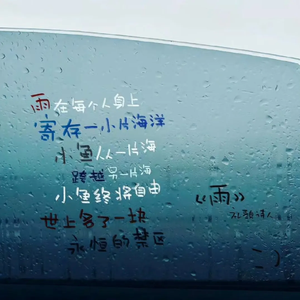 雨在每个人身上
寄存一小片海洋
小鱼从一片海
跨越另一片海
小鱼终将自由
世上多了一块
永恒的禁区
《雨》